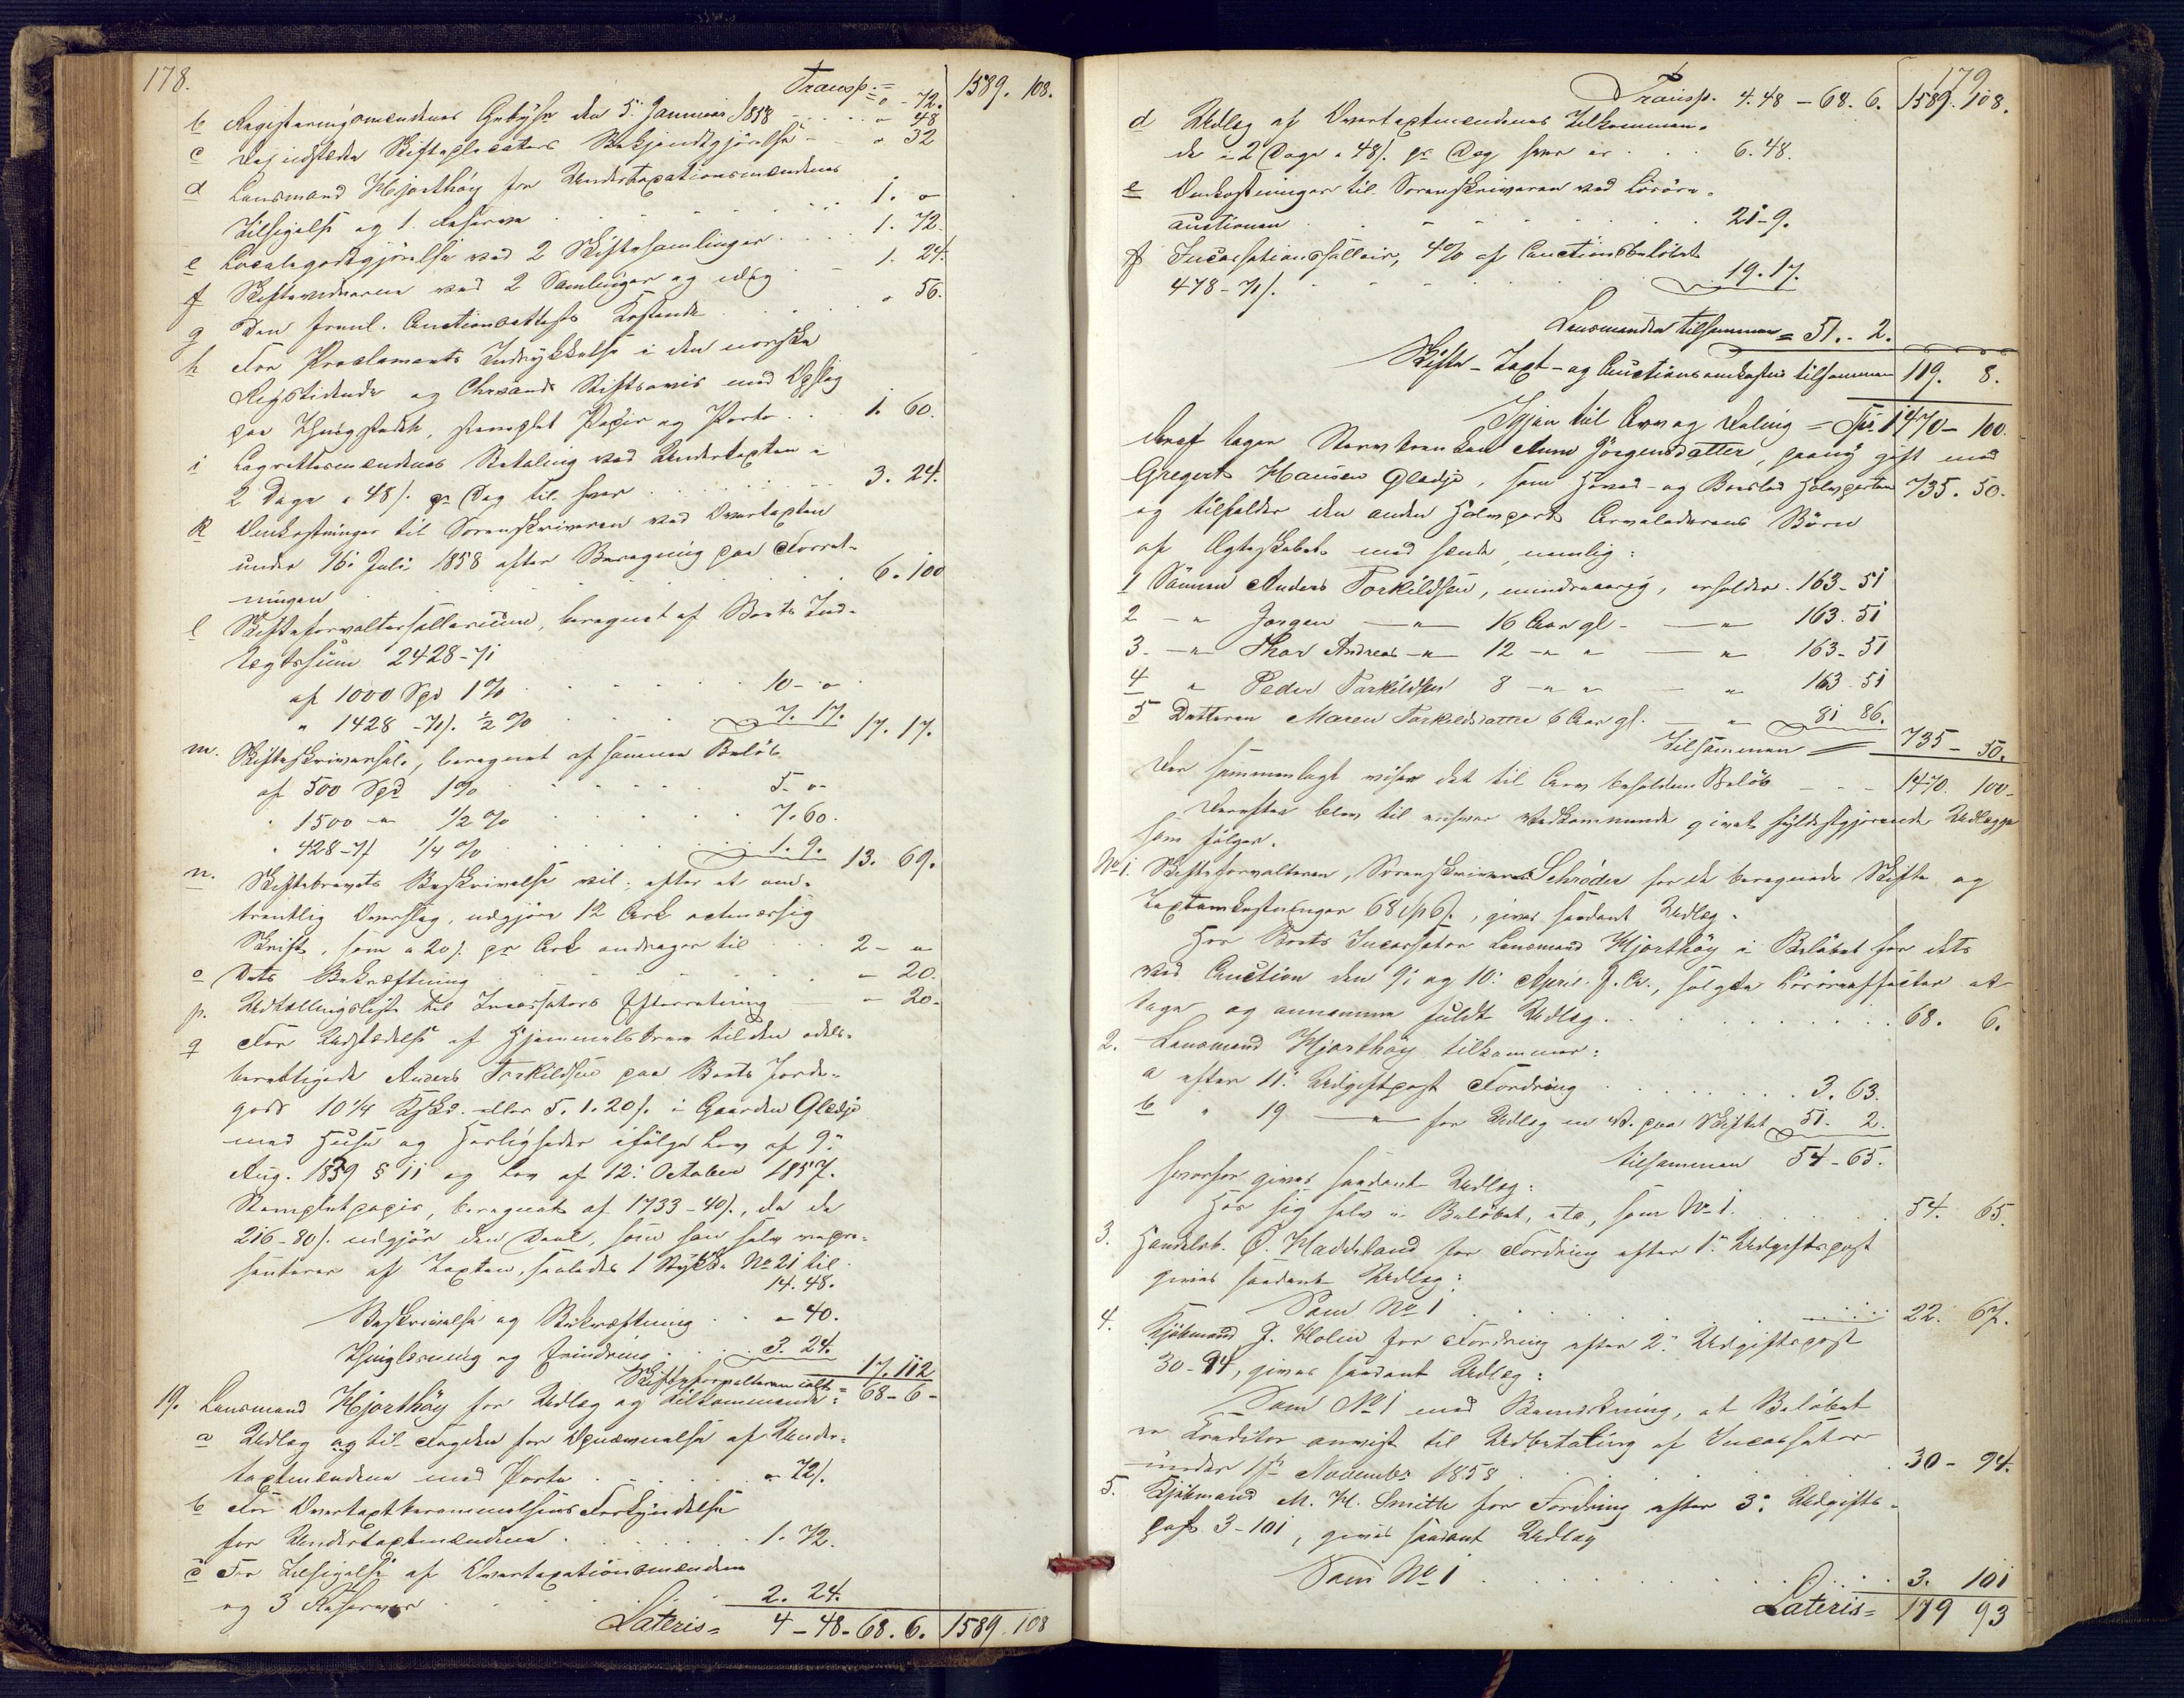 178.
Transp. = " - 72. 1589. 108.
b Registeringsmændenes Gebyhr den 5. Januar 1858 " 48
c Dagudstedte Skifteplacaters Bekjendtgjørelse " 32
d Lensmand Hjorthöy for Undertaxationsmændenes
Tilsigelse og 1 Reserve 1. "
e Localegodtgjörelse ved 2 Skiftesamlinger 1. 72.
f Skiftevidnerne ved 2 Samlinger og 1. 24.
g Den freml. Auctionsattests Kostende " 56.
h For Proclamaets Indrykkelse i den norske
Rigstidende og Chrsands Stiftsavis med Opslag
paa Thingstedet, stemplet Papir og Porto 1. 60.
i Lagrettesmændenes Betaling ved Undertaxten i
2 Dage a 48/. pr Dag til hver 3. 24.
k Omkostninger til Sorenskriveren ved Overtaxten
under 16. Juli 1858 efter Beregning paa Forret-
ningen 6. 100
l Skifteforvaltersallarium, beregnet af Boets Ind-
tægtssum 2428-71
af 1000 Spd 1% 10 - "
" 1428 -71/. ½ % 7. 17. 17. 17.
m. Skifteskriversal., beregnet af samme Beløb
af 500 Spd 1% 5. "
" 1500 - " 1/2 % 7. 60.
" 428-71 1/4 % 1. 9. 13. 69.
n. Skiftebrevets Beskrivelse vil, efter et om-
trentlig Overslag, udgjøre 12 Ark retmæssig
Skrift, som a 20/. pr Ark andrager til 2 - "
o Dets Bekræftning - 20.
p. Udtællingsliste til Incassators Efterretning - 20.
q For Udstædelse af Hjemmelsbrev til den odels-
berettigede Anders Torkildsen paa Boets Jorde-
gods 10¼ Kskd. eller 5. 1. 20/. i Gaarden Gledje
med Huse og Herligheder ifølge Lov af 9.
Aug. 1839 § 11 og Lov af 12. October 1857.
Stempletpapir, beregnet af 1733-40/., da de
216-80/. udgjör den Deel, som han selv repre-
senterer af Taxten, saaledes 1 Stykke No 21 til
14. 48.
Beskrivelse og Bekræftning - 40.
Thinglæsning og Erindring 3. 24.
17. 112
Skifteforvalteren ialt = 68 - 6 -
19. Lensmand Hjorthöy for Udlæg og Tilkommende:
a Udlæg og til Fogden for Opnævnelse af Under-
taxtmændene med Porto " 72/.
b For Overtaxtberammelsens Forkyndelse
for Undertaxtmændene 1. 72.
c For Tilsigelse af Overtaxationsmændene
og 3 Reserver 2. 24.
Lateris = 4 - 48 - 68. 6. 1589. 108
179
Transp. 4. 48 - 68. 6. 1589. 108.
d Udlæg af Overtaxtmændenes Tilkommen-
de i 2 Dage a 48/. pr Dag hver er 6. 48.
e Omkostninger til Sorenskriveren ved Lösöre-
auctionen 21 - 9.
f Incassationssallair, 4% af Auctionsbeløbet
478-71/. 19. 17.
Lensmanden tilsammen = 51. - 2.
Skifte- Taxt- og Auctionsomkostn. tilsammen 119. 8.
Igjen til Arv og Deling = Spd 1470 - 100.
Deraf tager Stervboenken Anne Jörgensdatter, paany gift med
Gregert Hansen Gledje, som Hoved- og Boeslod Halvparten 735. 50.
og tilfalder den anden Halvpart Arveladerens Börn
af Ægteskabet med hende, nemlig:
1 Sönnen Anders Torkildsen, mindreaarig, erholder 163 - 51
2 - " Jorgen - " - 16 Aar gl - " 163. 51
3. - " Thor Andreas - " - 12 - " " - " 163 - 51
4 " Peder Torkildsen 8 - " " - " 163. 51
5 Datteren Maren Torkildsdatter 6 Aar gl. - " 81 86.
Tilsammen = 735 - 50.
Der sammenlagt viser det til Arv beholdne Beløb 1470. 100 -
Derefter blev til enhver Vedkommende givet fyldestgjørende Udlægge
som følger.
No 1. Skifteforvalteren, Sorenskriver Schröder for de beregnede Skifte og
Taxtomkostninger 68 Sp 6/., gives saadant Udlæg:
Hos Boets Incassator Lensmand Hjorthöy i Beløbet for dets
ved Auction den 9. og 10. April d. A., solgte Lösöreeffecter at
tage og annamme fuldt Udlæg. 68. 6.
2. Lensmand Hjorthöy tilkommer:
a efter 11. Udgiftpost Fordring 3. 63.
b " 19 - " - for Udlæg m. V. paa Skiftet 51. 2.
tilsammen 54 - 65.
hvorfor gives saadant Udlæg:
Hos sig selv i Beløbet, etc, som No 1. 54. 65.
3. Handelsb. O. Haddeland for Fordring efter 1. Udgiftspost
gives saadant Udlæg:
Som No 1 22. 67.
4. Kjöbmand J. Holm for Fordring efter 2. Udgiftspost
30-94, gives saadant Udlæg:
Som No 1 med Bemærkning, at Beløbet
er Creditor anvist til Udbetaling af Incassator
under 1ste November 1858 30 - 94.
5. Kjöbmand M. H. Smith for Fordring efter 3. Udgifts-
post 3-101, gives saadant Udlæg
Som No 1 3. 101
Lateris = 179 93